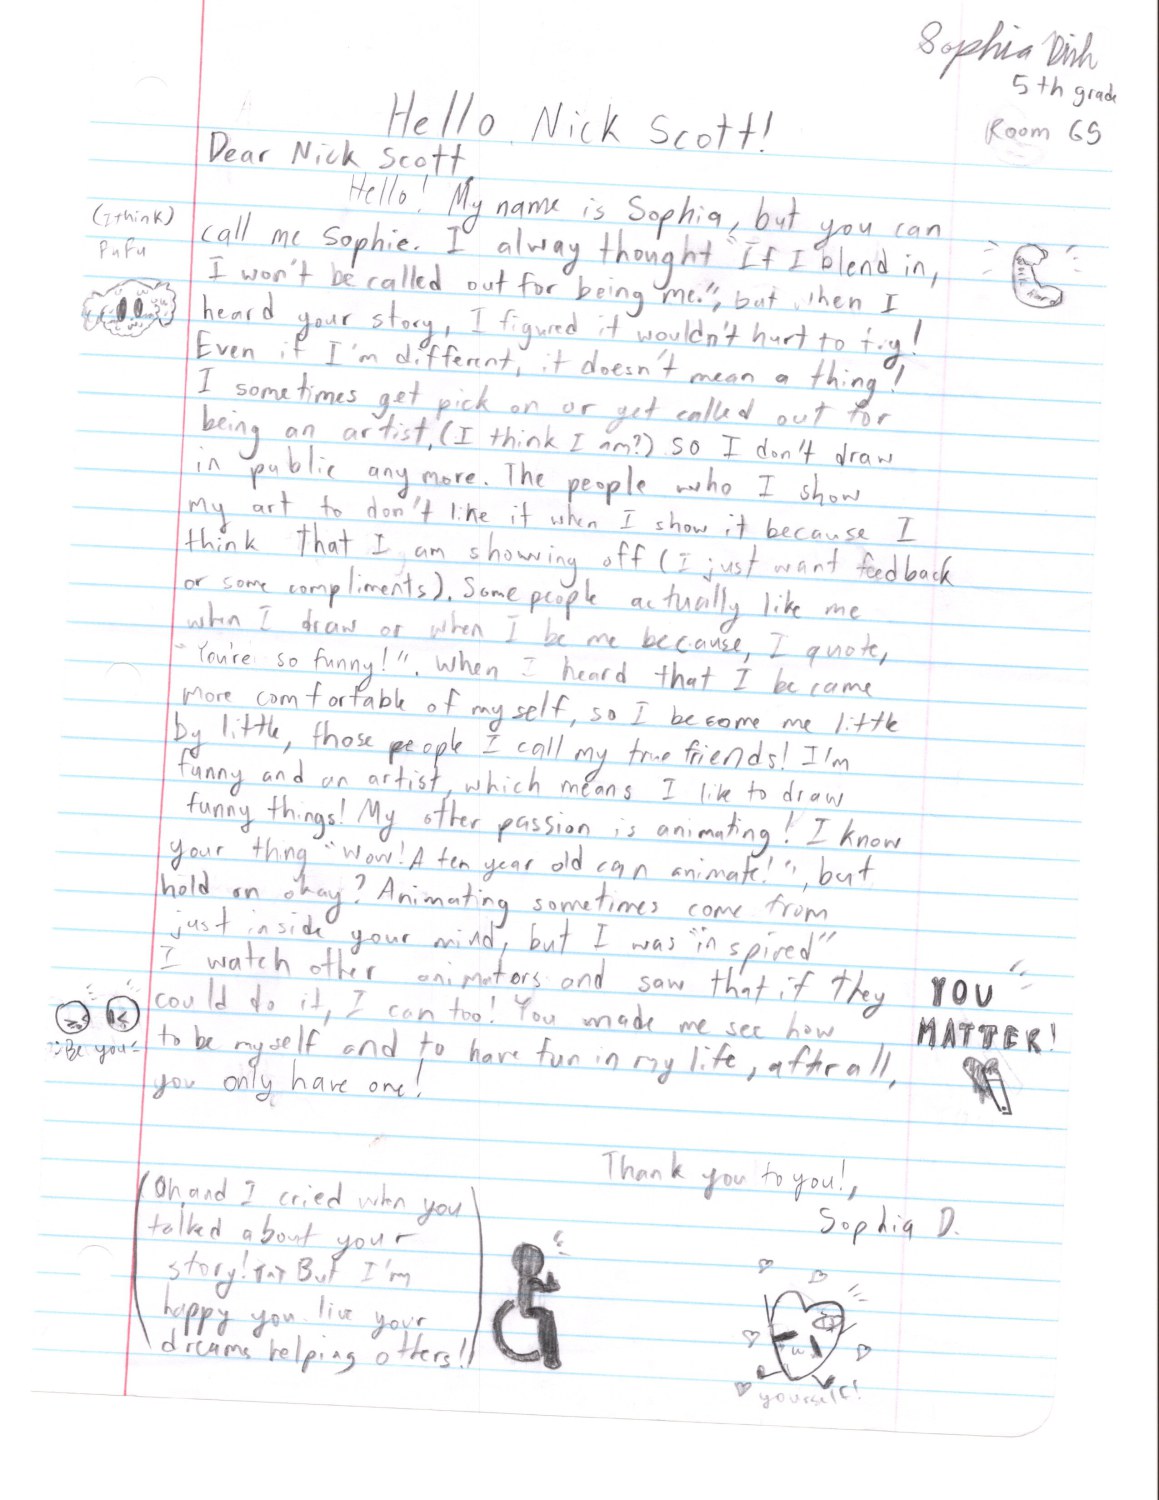 Sophia Dish
5th grade
Room 65
Hello Nick Scott!
Dear Nick Scott,
Hello! My name is Sophia, but you can
call me Sophie. I alway thought "If I blend in,
I won't be called out for being me.", but when I
heard your story, I figured it wouldn't hurt to try!
Even if I'm different, it doesn't mean a thing!
I sometimes get pick on or get called out for
being an artist, (I think I am?) so I don't draw
in public any more. The people who I show
my art to don't like it when I show it because I
think that I am showing off (I just want feedback
or some compliments). Some people actually like me
when I draw or when I be me because, I quote,
"You're so funny!". When I heard that I became
more comfortable of my self, so I become me little
by little, those people I call my true friends! I'm
funny and an artist, which means I like to draw
funny things! My other passion is animating! I know
your thing "Wow! A ten year old can animate!", but
hold on okay? Animating sometimes come from
just inside your mind, but I was "inspired"
I watch other animators and saw that if they
could do it, I can too! You made me see how
to be myself and to have fun in my life, after all,
you only have one!
(I think)
PuFu
Be you
YOU
MATTER!
Thank you to you!,
Sophia D.
(Oh, and I cried when you
talked about your
story! TnT But I'm
happy you live your
dreams helping others!)
yourself!